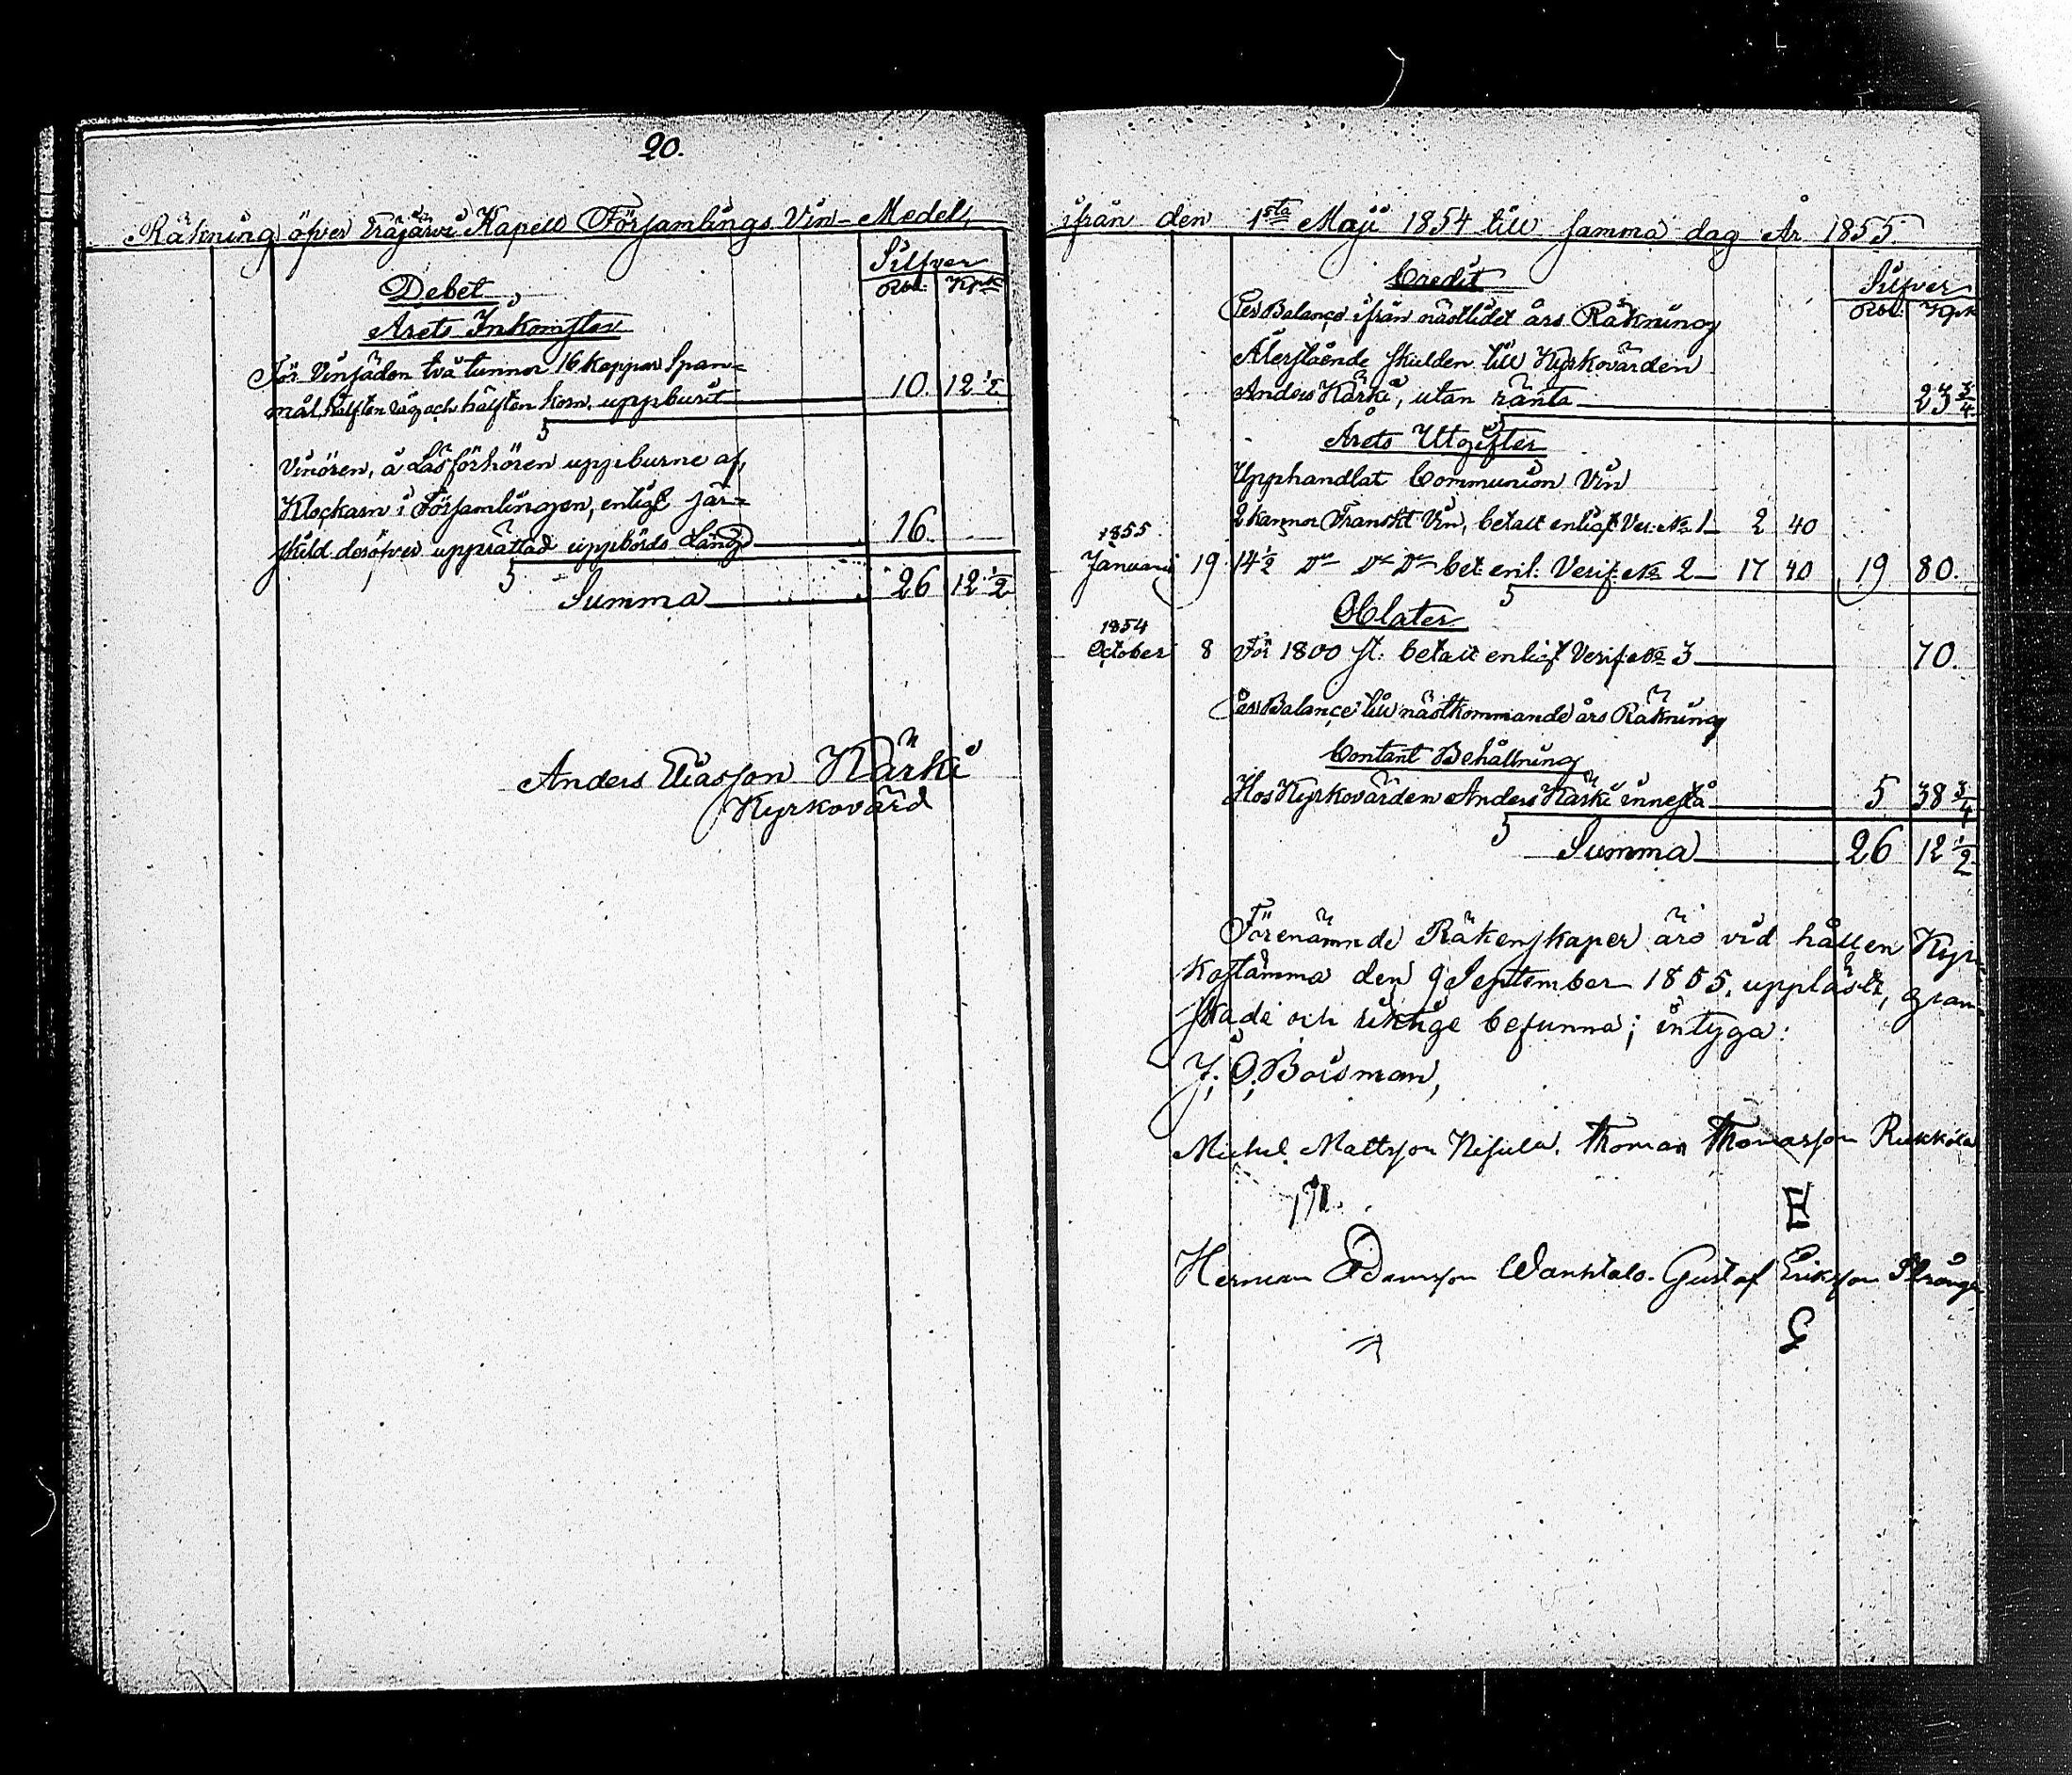 20.
Räkning öfver Eräjärvi Kapell Församlings Vin-Medel,
Silfver
Debet
Rbl. Kpk
Årets Inkomster
För Vinsäden två tunnor 16 kappar Span=
mål, hälften råg och hälften korn, uppburit 10. 12 1/2
Vinören, å Läsförhören uppburne af
Klockarn i Församlingen, enligt sär=
skild deröfver upprättad uppbörds Längd 16.
Summa 26 12 1/2
Anders Eliasson Kärki
Kyrkovärd
ifrån den 1sta Maji 1854 till samma dag År 1855.
Credit
Silfver
Rbl. Kpk
Per Balance ifrån nästlidet års Räkning
Återstående skulden till Kyrkovärden
Anders Kärki, utan ränta 23 3/4
Årets Utgifter
Upphandlat Communion Vin
2 kannor Franskt Vin, betalt enligt Ver: No 1 2 40
1855
Januari 19 14 1/2 Do Do Do bet: enl: Verif: No 2 17 40 19 80.
Oblater
1854
October 8 För 1800 st: betalt enligt Verif: No 3 70.
Per Balance till nästkommande års Räkning
Contant Behållning
Hos Kyrkovärden Anders Kärki innestå 5 38 3/4
Summa 26 12 1/2
Förenämnde Räkenskaper äro vid hållen Kyr=
kostämma den 9 September 1855, uppläste, gran=
skade och riktige befunna; intyga:
J. O. Boisman,
Michel Mattsson Nisula. Thomas Thomasson Rukkila
Herman Adamsson Wanhtalo. Gustaf Eriksson Strång
G